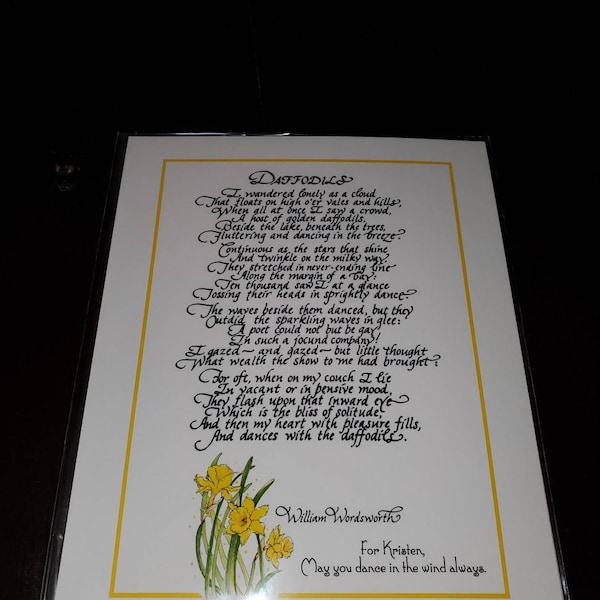 DAFFODILS
I wandered lonely as a cloud
That floats on high o'er vales and hills,
When all at once I saw a crowd,
A host of golden daffodils,
Beside the lake, beneath the trees,
Fluttering and dancing in the breeze.
Continuous as the stars that shine
And twinkle on the milky way,
They stretched in never-ending line
Along the margin of a bay:
Ten thousand saw I at a glance
Tossing their heads in sprightly dance.
The waves beside them danced, but they
Outdid the sparkling waves in glee:
A poet could not but be gay
In such a jocund company!
I gazed~and gazed~but little thought
What wealth the show to me had brought:
For oft, when on my couch I lie
In vacant or in pensive mood,
They flash upon that inward eye
Which is the bliss of solitude;
And then my heart with pleasure fills,
And dances with the daffodils.
William Wordsworth
For Kristen,
May you dance in the wind always.